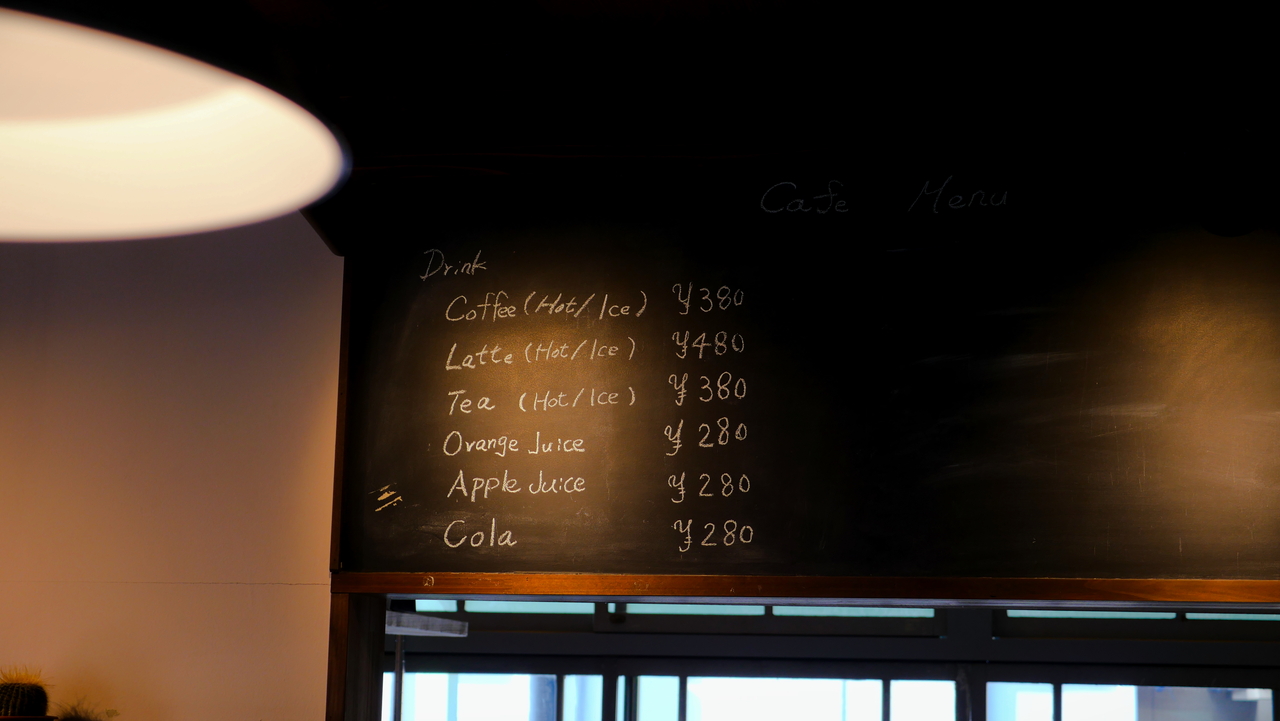 Cafe Menu
Drink
Coffee (Hot/Ice) ¥380
Latte (Hot/Ice) ¥480
Tea (Hot/Ice) ¥380
Orange Juice ¥280
Apple Juice ¥280
Cola ¥280